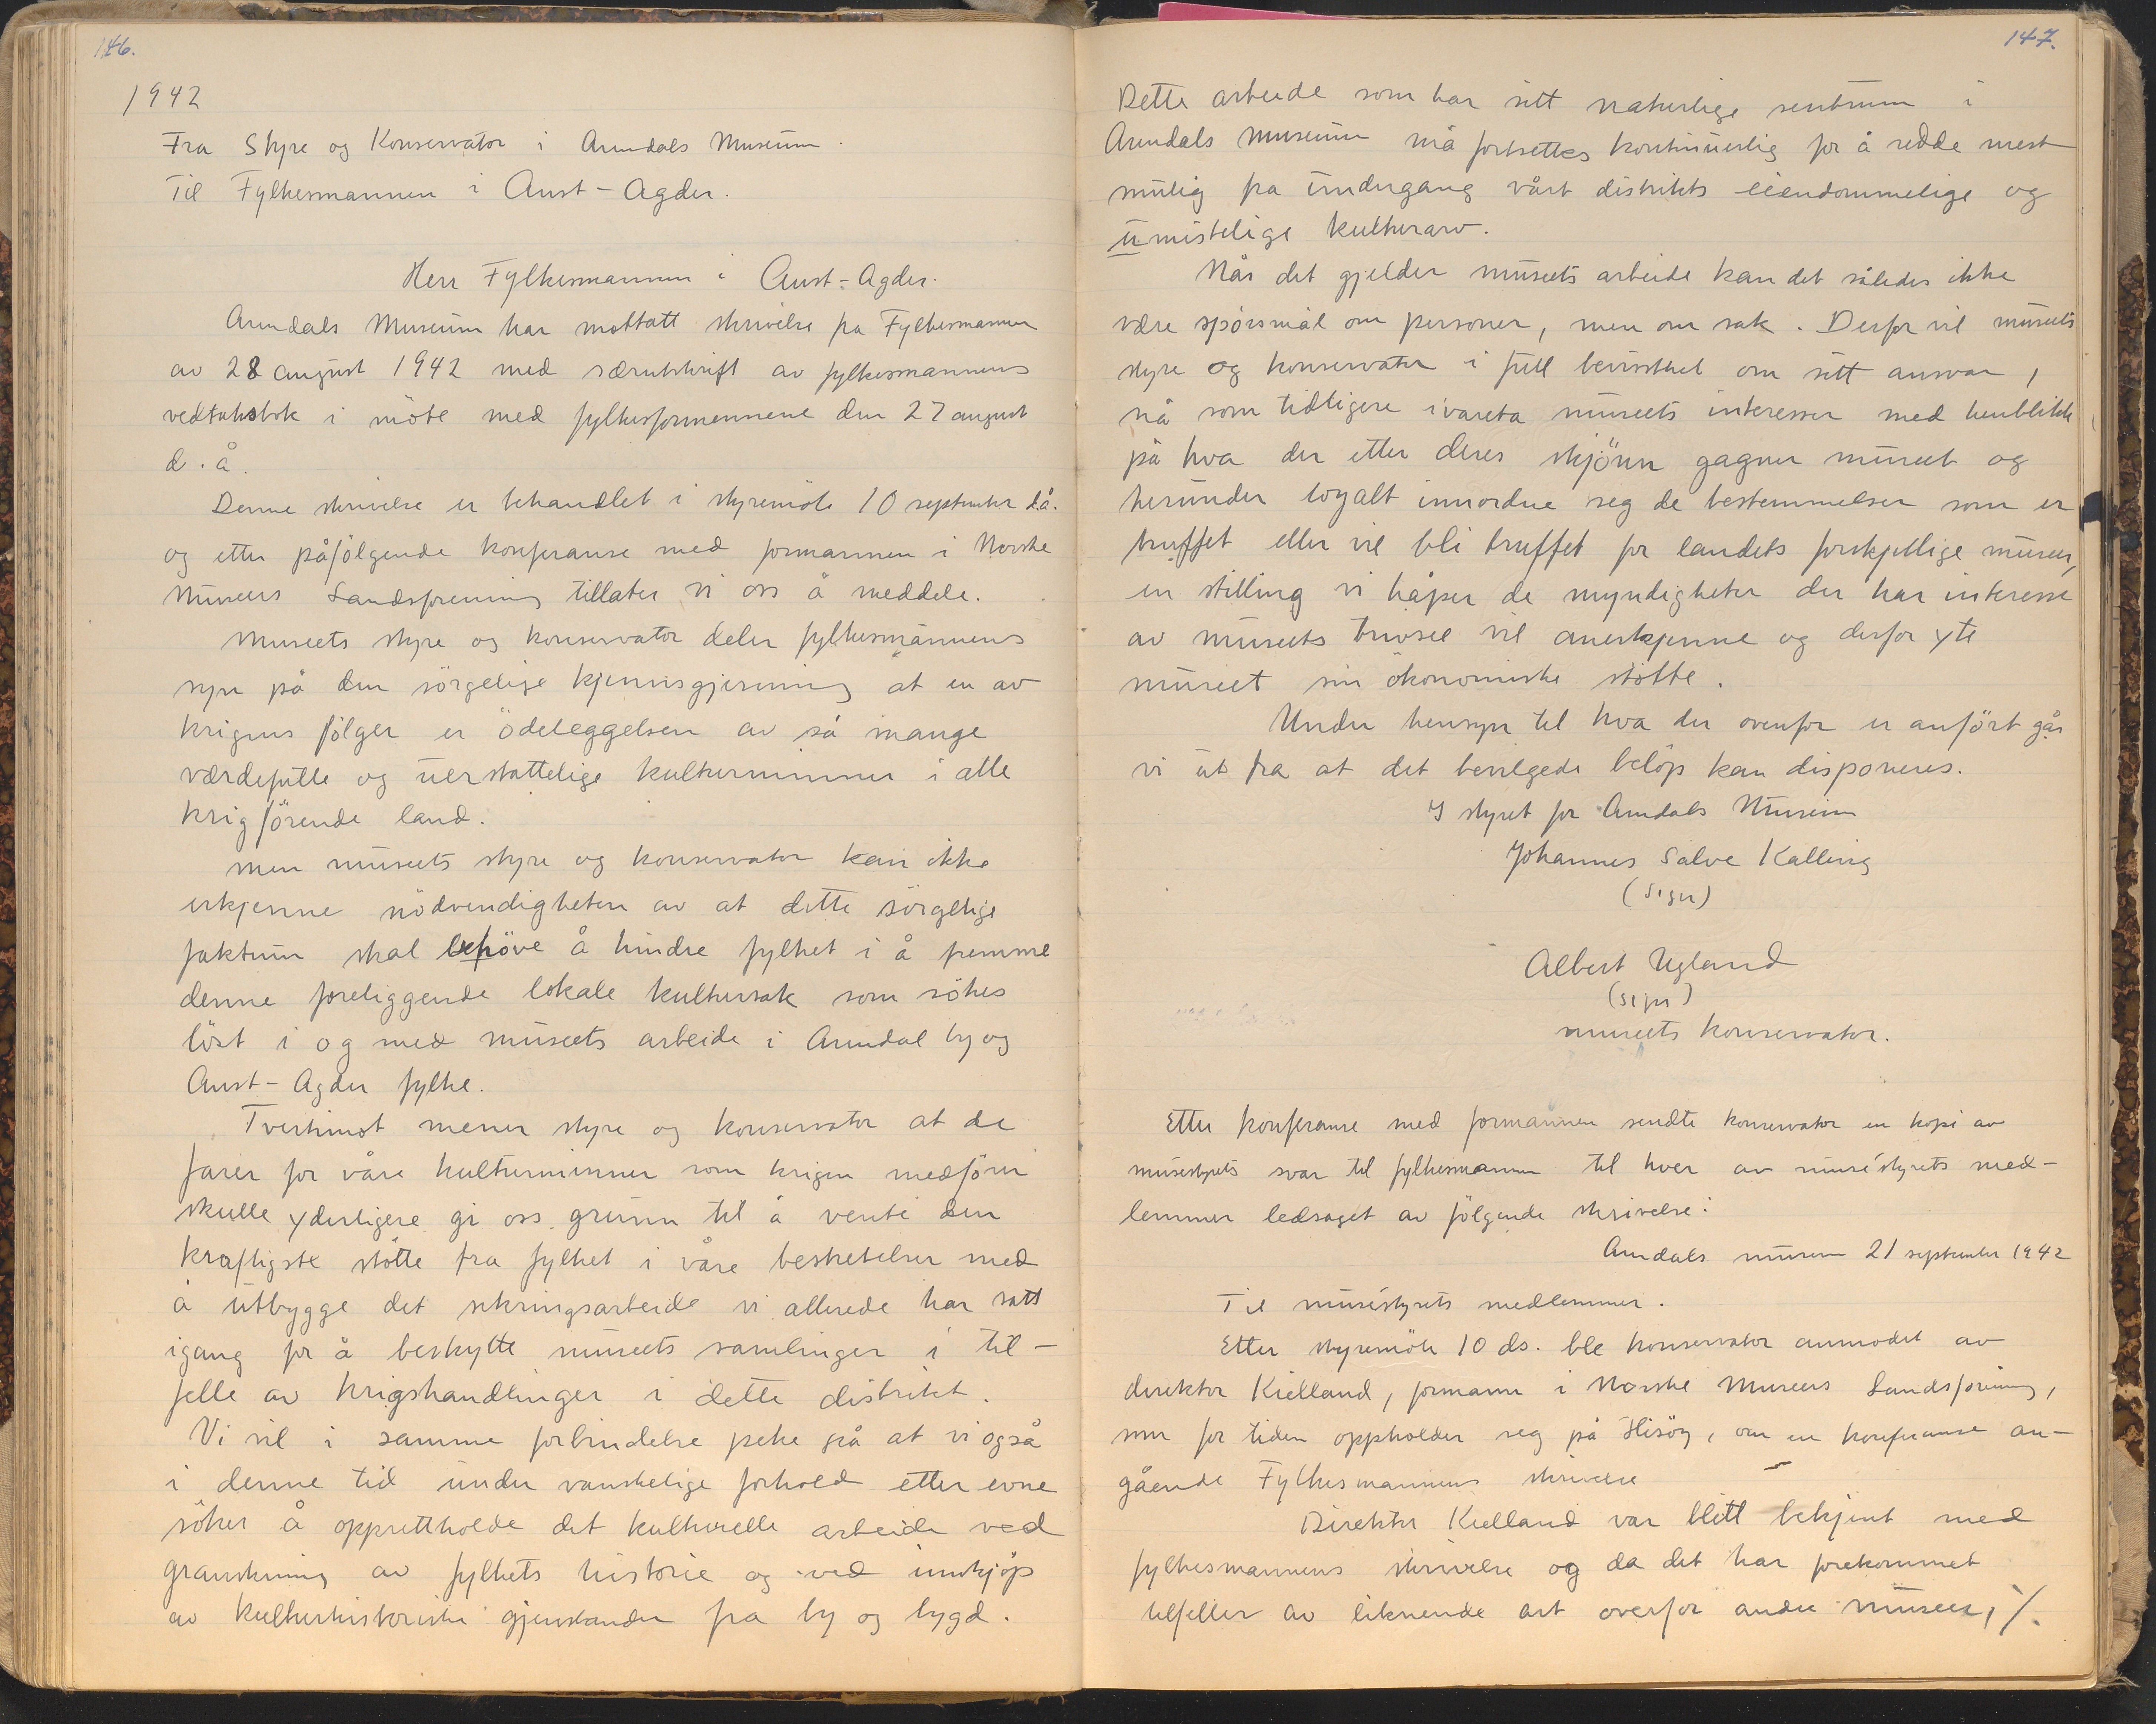 146.
1942
Fra Styre og Konservator i Arendals Museum.
Til Fylkesmannen i Aust-Agder.
Herr Fylkesmannen i Aust-Agder.
Arendals Museum har mottatt skrivelse fra Fylkesmannen
av 28 august 1942 med særutskrift av fylkesmannens
vedtaksbok i möte med fylkesformennene den 27 august
d.å.
Denne skrivelse er behandlet i styremöte 10 september d.å.
og etter påfölgende konferanse med formannen i Norske
Museers Landsforening tillater vi oss å meddele.
Museets styre og konservator deler fylkesmannens
syn på den sörgelige kjennsgjerning at en av
krigens fölger er ödeleggelsen av så mange
værdefulle og uerstattelige kulturminner i alle
krigförende land.
Men museets styre og konservator kan ikke
erkjenne nödvendigheten av at dette sörgelige
faktum skal behöve å hindre fylket i å fremme
denne foreliggende lokale kultursak som sökes
löst i og med museets arbeide i Arendal by og
Aust-Agder fylke.
Tvertimot mener styre og konservator at de
farer for våre kulturminner som krigen medförer
skulle yderligere gi oss grunn til å vente den
kraftigste stötte fra fylket i våre bestrebelser med
å utbygge det sikringsarbeide vi allerede har satt
igang for å beskytte museets samlinger i til-
felle av krigshandlinger i dette distrikt.
Vi vil i samme forbindelse peke på at vi også
i denne tid under vanskelige forhold etter evne
söker å opprettholde det kulturelle arbeide ved
granskning av fylkets historie og ved innkjöp
av kulturhistoriske gjenstander fra by og bygd.
147.
Dette arbeide som har sitt naturlige sentrum i
Arendals Museum må fortsettes kontinuerlig for å redde mest
mulig fra undergang vårt distrikts eiendommelige og
umistelige kulturarv.
Når det gjelder museets arbeide kan det således ikke
være spörsmål om personer, men om sak. Derfor vil museets
styre og konservator i full bevissthet om sitt ansvar,
nå som tidligere ivareta museets interesser med henblikk
på hva der etter deres skjönn gagner museet og
herunder loyalt innordne seg de bestemmelser som er
truffet eller vil bli truffet for landets forskjellige museer,
en stilling vi håper de myndigheter der har interesse
av museets trivsel vil anerkjenne og derfor yte
museet sin ökonomiske stötte.
Under hensyn til hva der ovenfor er anfört går
vi ut fra at det bevilgede belöp kan disponeres.
I styret for Arendals Museum
Johannes Salve Kalleving
(sign)
Albert Ugland
(sign)
museets konservator.
Etter konferanse med formannen sendte konservator en kopi av
musestyrets svar til fylkesmannen til hver av musestyrets med-
lemmer ledsaget av fölgende skrivelse:
Arendals museum 21 september 1942
Til musestyrets medlemmer.
Etter styremöte 10 ds. ble konservator anmodet av
direktör Kielland, formann i Norske Museers Landsforening,
som for tiden oppholder seg på Hisöy, om en konferanse an-
gående Fylkesmannens skrivelse
Direktör Kielland var blitt bekjent med
fylkesmannens skrivelse og da det har forekommet
tilfeller av liknende art overfor andre museer, ./.